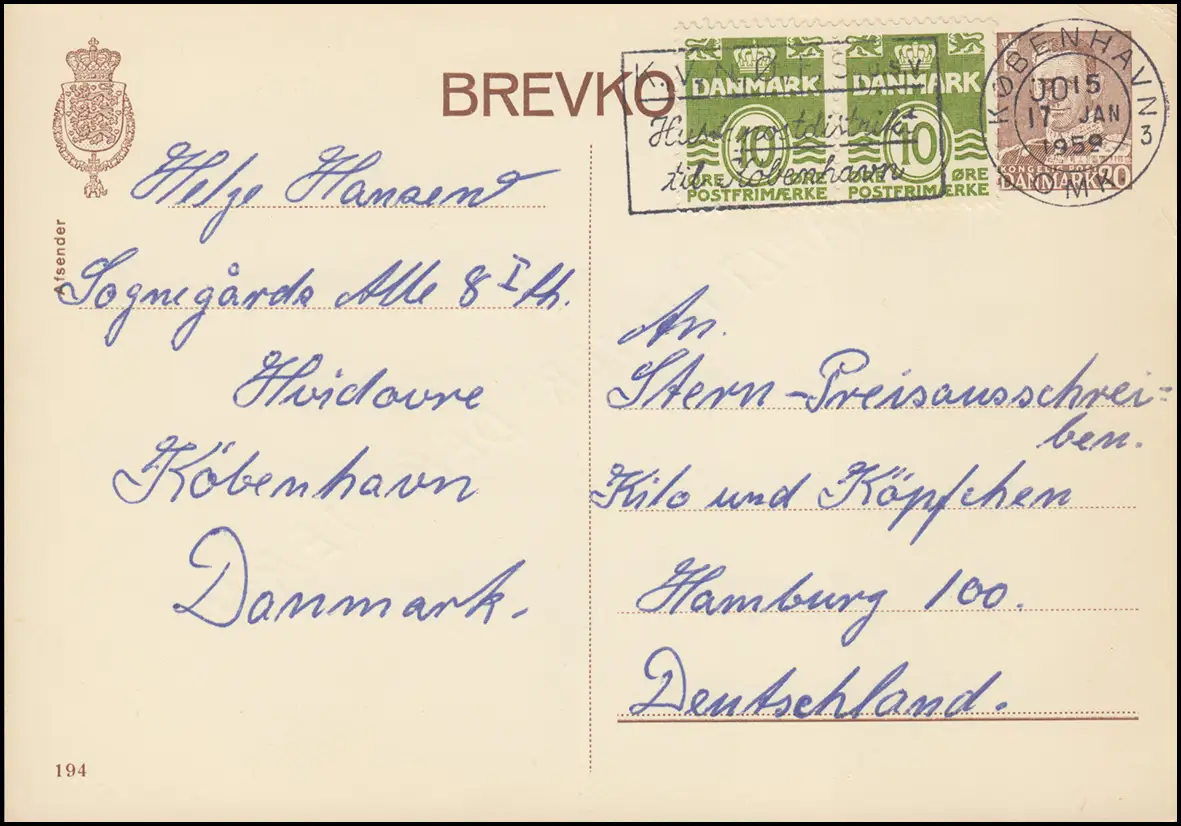 BREVKO
K. V. N. Ø. F. S. usv.
Husk postdistrikt
til København
DANMARK
10
ØRE
POSTFRIMÆRKE
DANMARK
10
ØRE
POSTFRIMÆRKE
KØBENHAVN 3
15
17 JAN
1959
OMK
KONGELIG POST
DANMARK
Afsender
Helge Hansen
Sognegårds Alle 8 I th.
Hvidovre
Köbenhavn
Danmark.
An.
Stern-Preisausschrei=
ben.
Kilo und Köpfchen
Hamburg 100.
Deutschland.
194